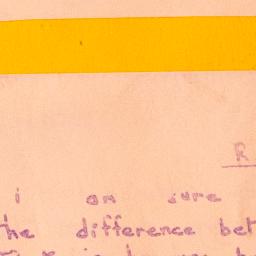 R
i am sure
the difference bet